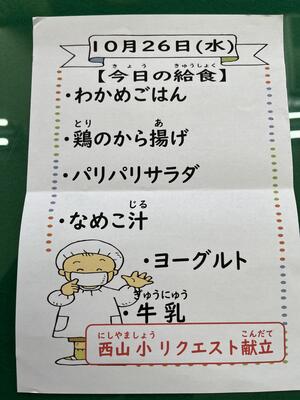 10月26日(水)
きょう きゅうしょく
【今日の給食】
・わかめごはん
とり あ
・鶏のから揚げ
・パリパリサラダ
じる
・なめこ汁
・ヨーグルト
ぎゅうにゅう
・牛乳
にしやましょう こんだて
西山小リクエスト献立